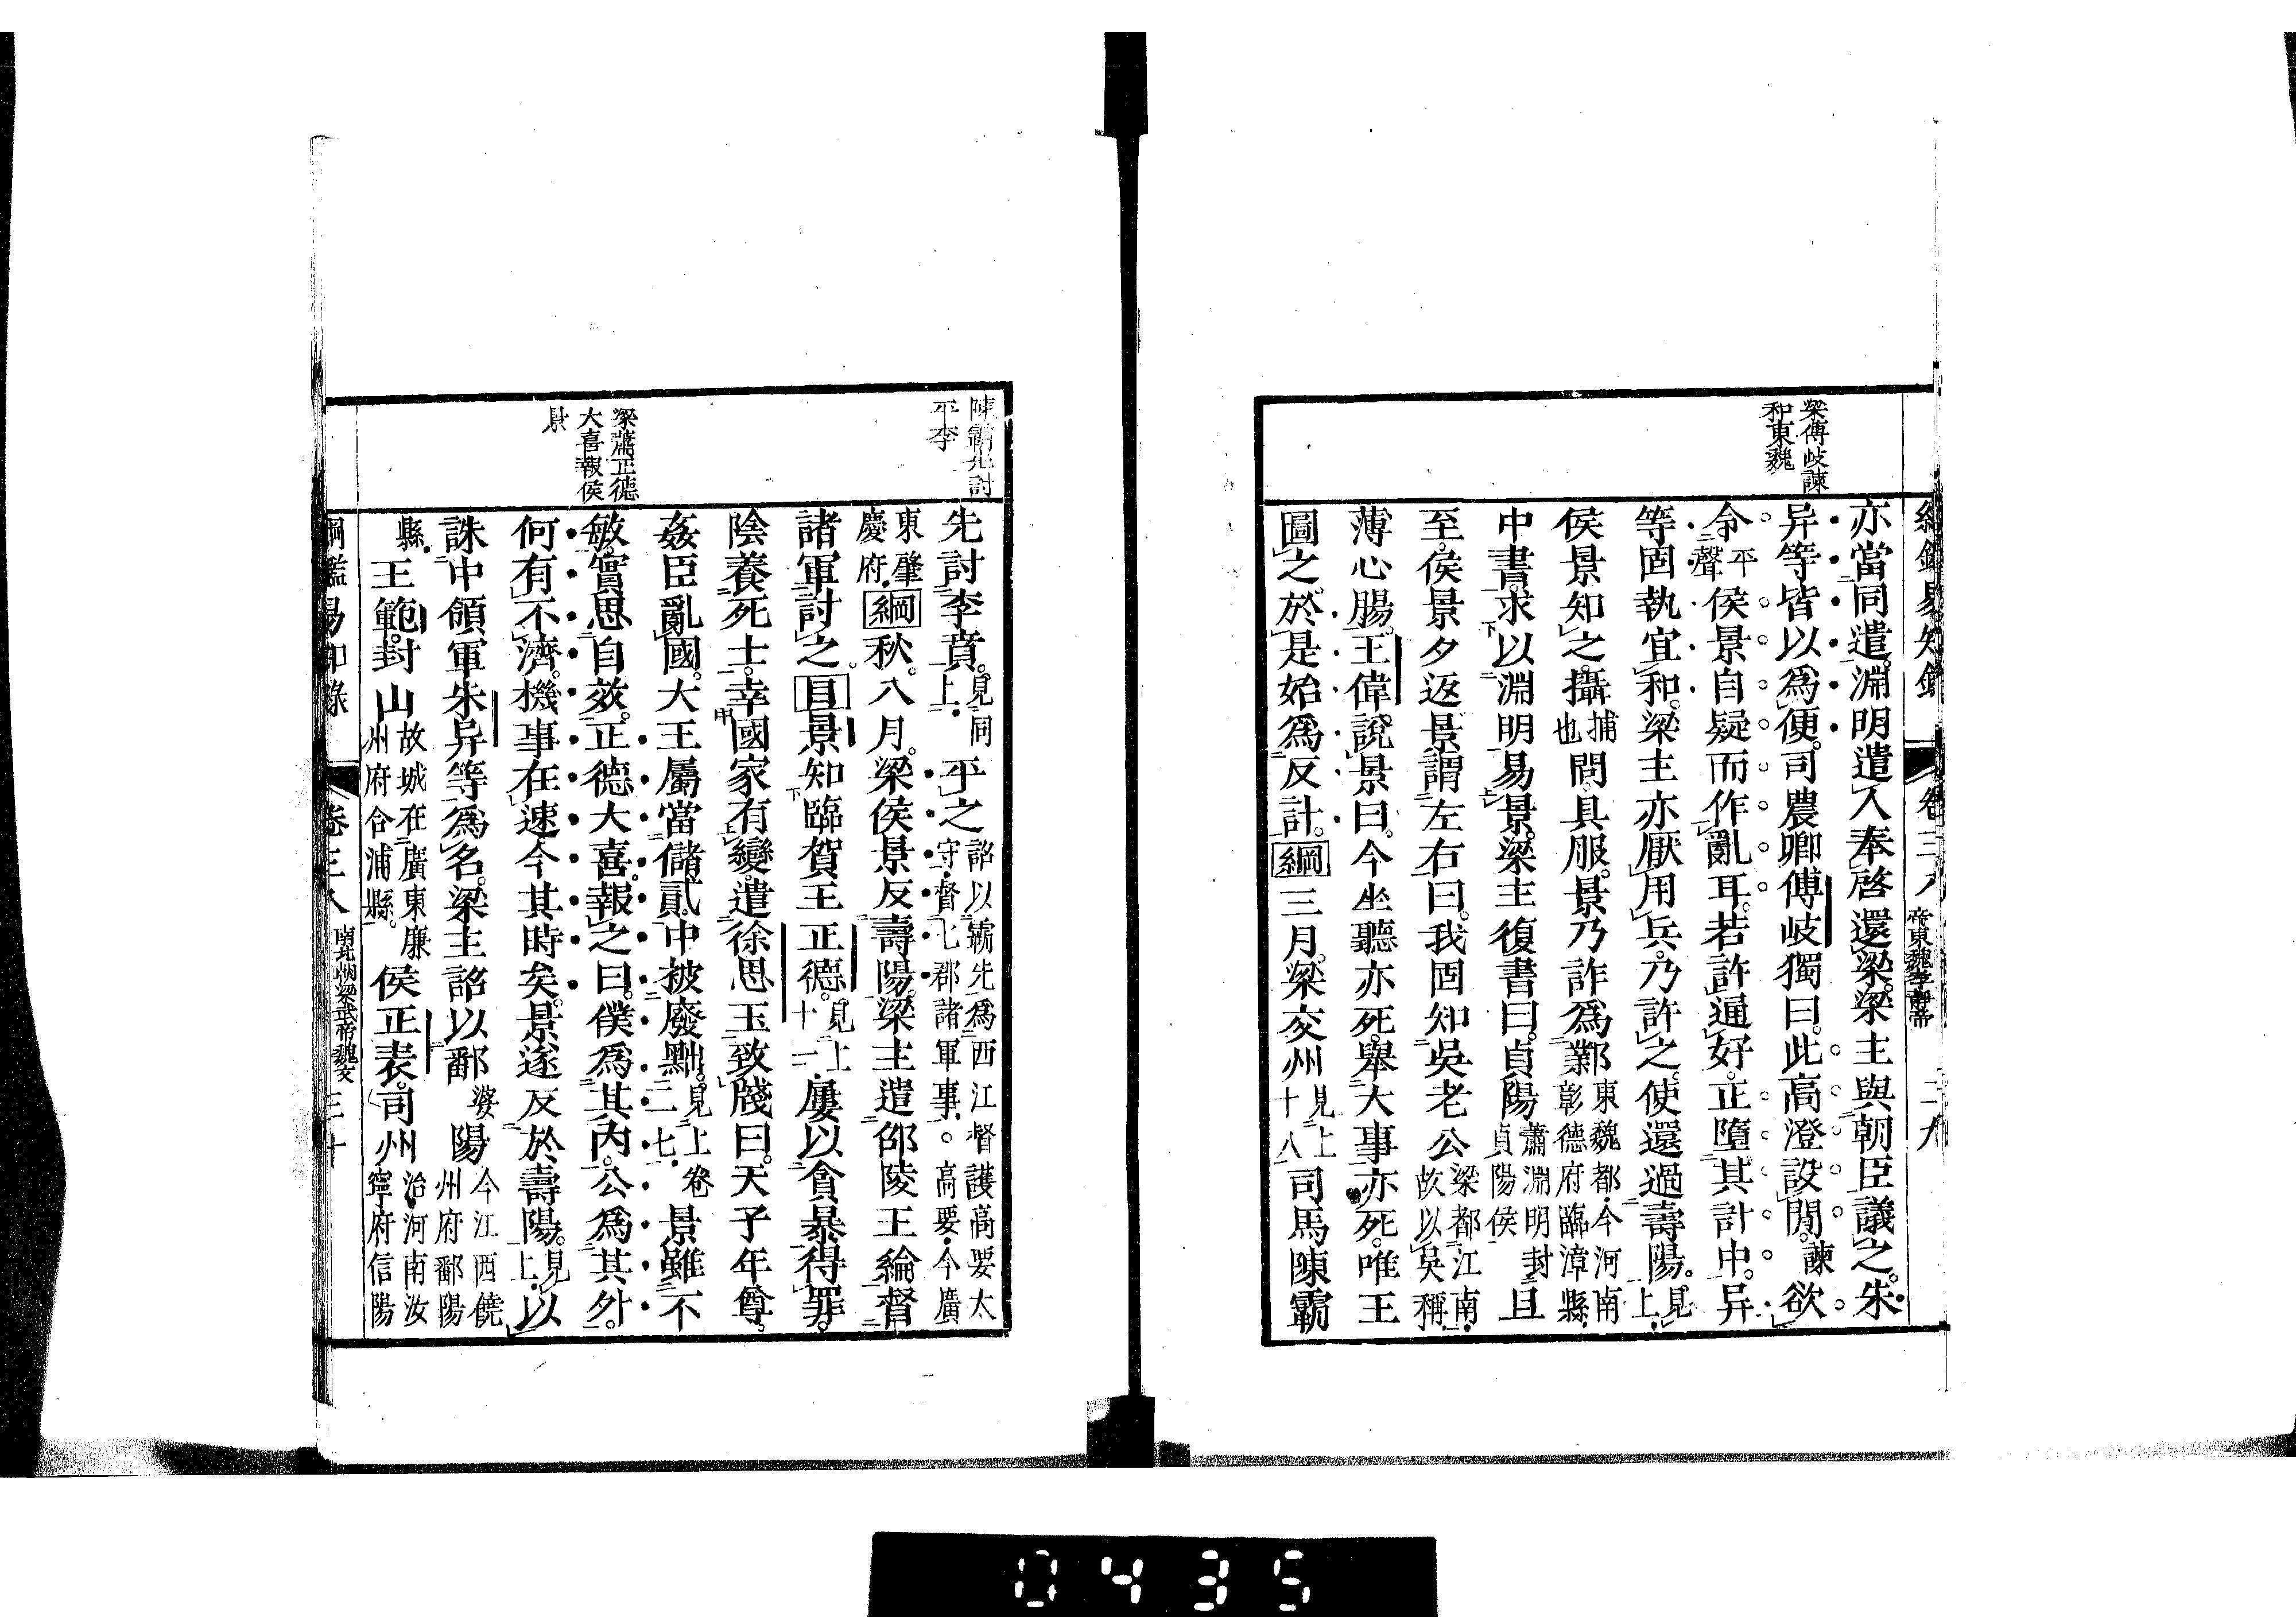 綱鑑易知錄 卷三八 帝東魏孝靜帝 二九
梁傅岐諫
和東魏
亦當同遣。淵明遣人奉啓還梁。梁主與朝臣議之。朱
异等皆以爲便。司農卿傅岐獨曰。此高澄設閒。諫欲
令平聲侯景自疑而作亂耳。若許通好。正墮其計中。异
等固執宜和。梁主亦厭用兵。乃許之。使還過壽陽。見上。
侯景知之。攝捕也問。具服。景乃詐爲鄴東魏都。今河南彰德府臨漳縣。
中書。求以淵明易景。梁主復書曰。貞陽蕭淵明封貞陽侯且
至。侯景夕返。景謂左右曰。我固知吳老公梁都江南。故以吳稱
薄心腸。王偉說景曰。今坐聽亦死。舉大事亦死。唯王
圖之。於是始爲反計。綱三月。梁交州見上十八司馬陳霸
陳霸先討
平李
先討李賁。見同上。平之詔以霸先爲西江督護高要太守。督七郡諸軍事。。高要。今廣
東肇慶府。綱秋。八月。梁侯景反壽陽。梁主遣邵陵王綸督
諸軍討之。目景知臨賀王正德。見上十一。屢以貪暴得罪。
陰養死士。幸國家有變。遣徐思玉致牋曰。天子年尊。
姦臣亂國。大王屬當儲貳。中被廢黜。見上卷二七。景雖不
梁蕭正德
大喜報侯
景
敏。實思自效。正德大喜。報之曰。僕爲其內。公爲其外。
何有不濟。機事在速。今其時矣。景遂反於壽陽。見上。以
誅中領軍朱异等爲名。梁主詔以鄱婆陽今江西饒州府鄱陽
縣。王範。封山故城在廣東廉州府合浦縣。侯正表。司州治河南汝寧府信陽
綱鑑易知錄 卷三八 南北朝梁武帝魏文 三十
0435